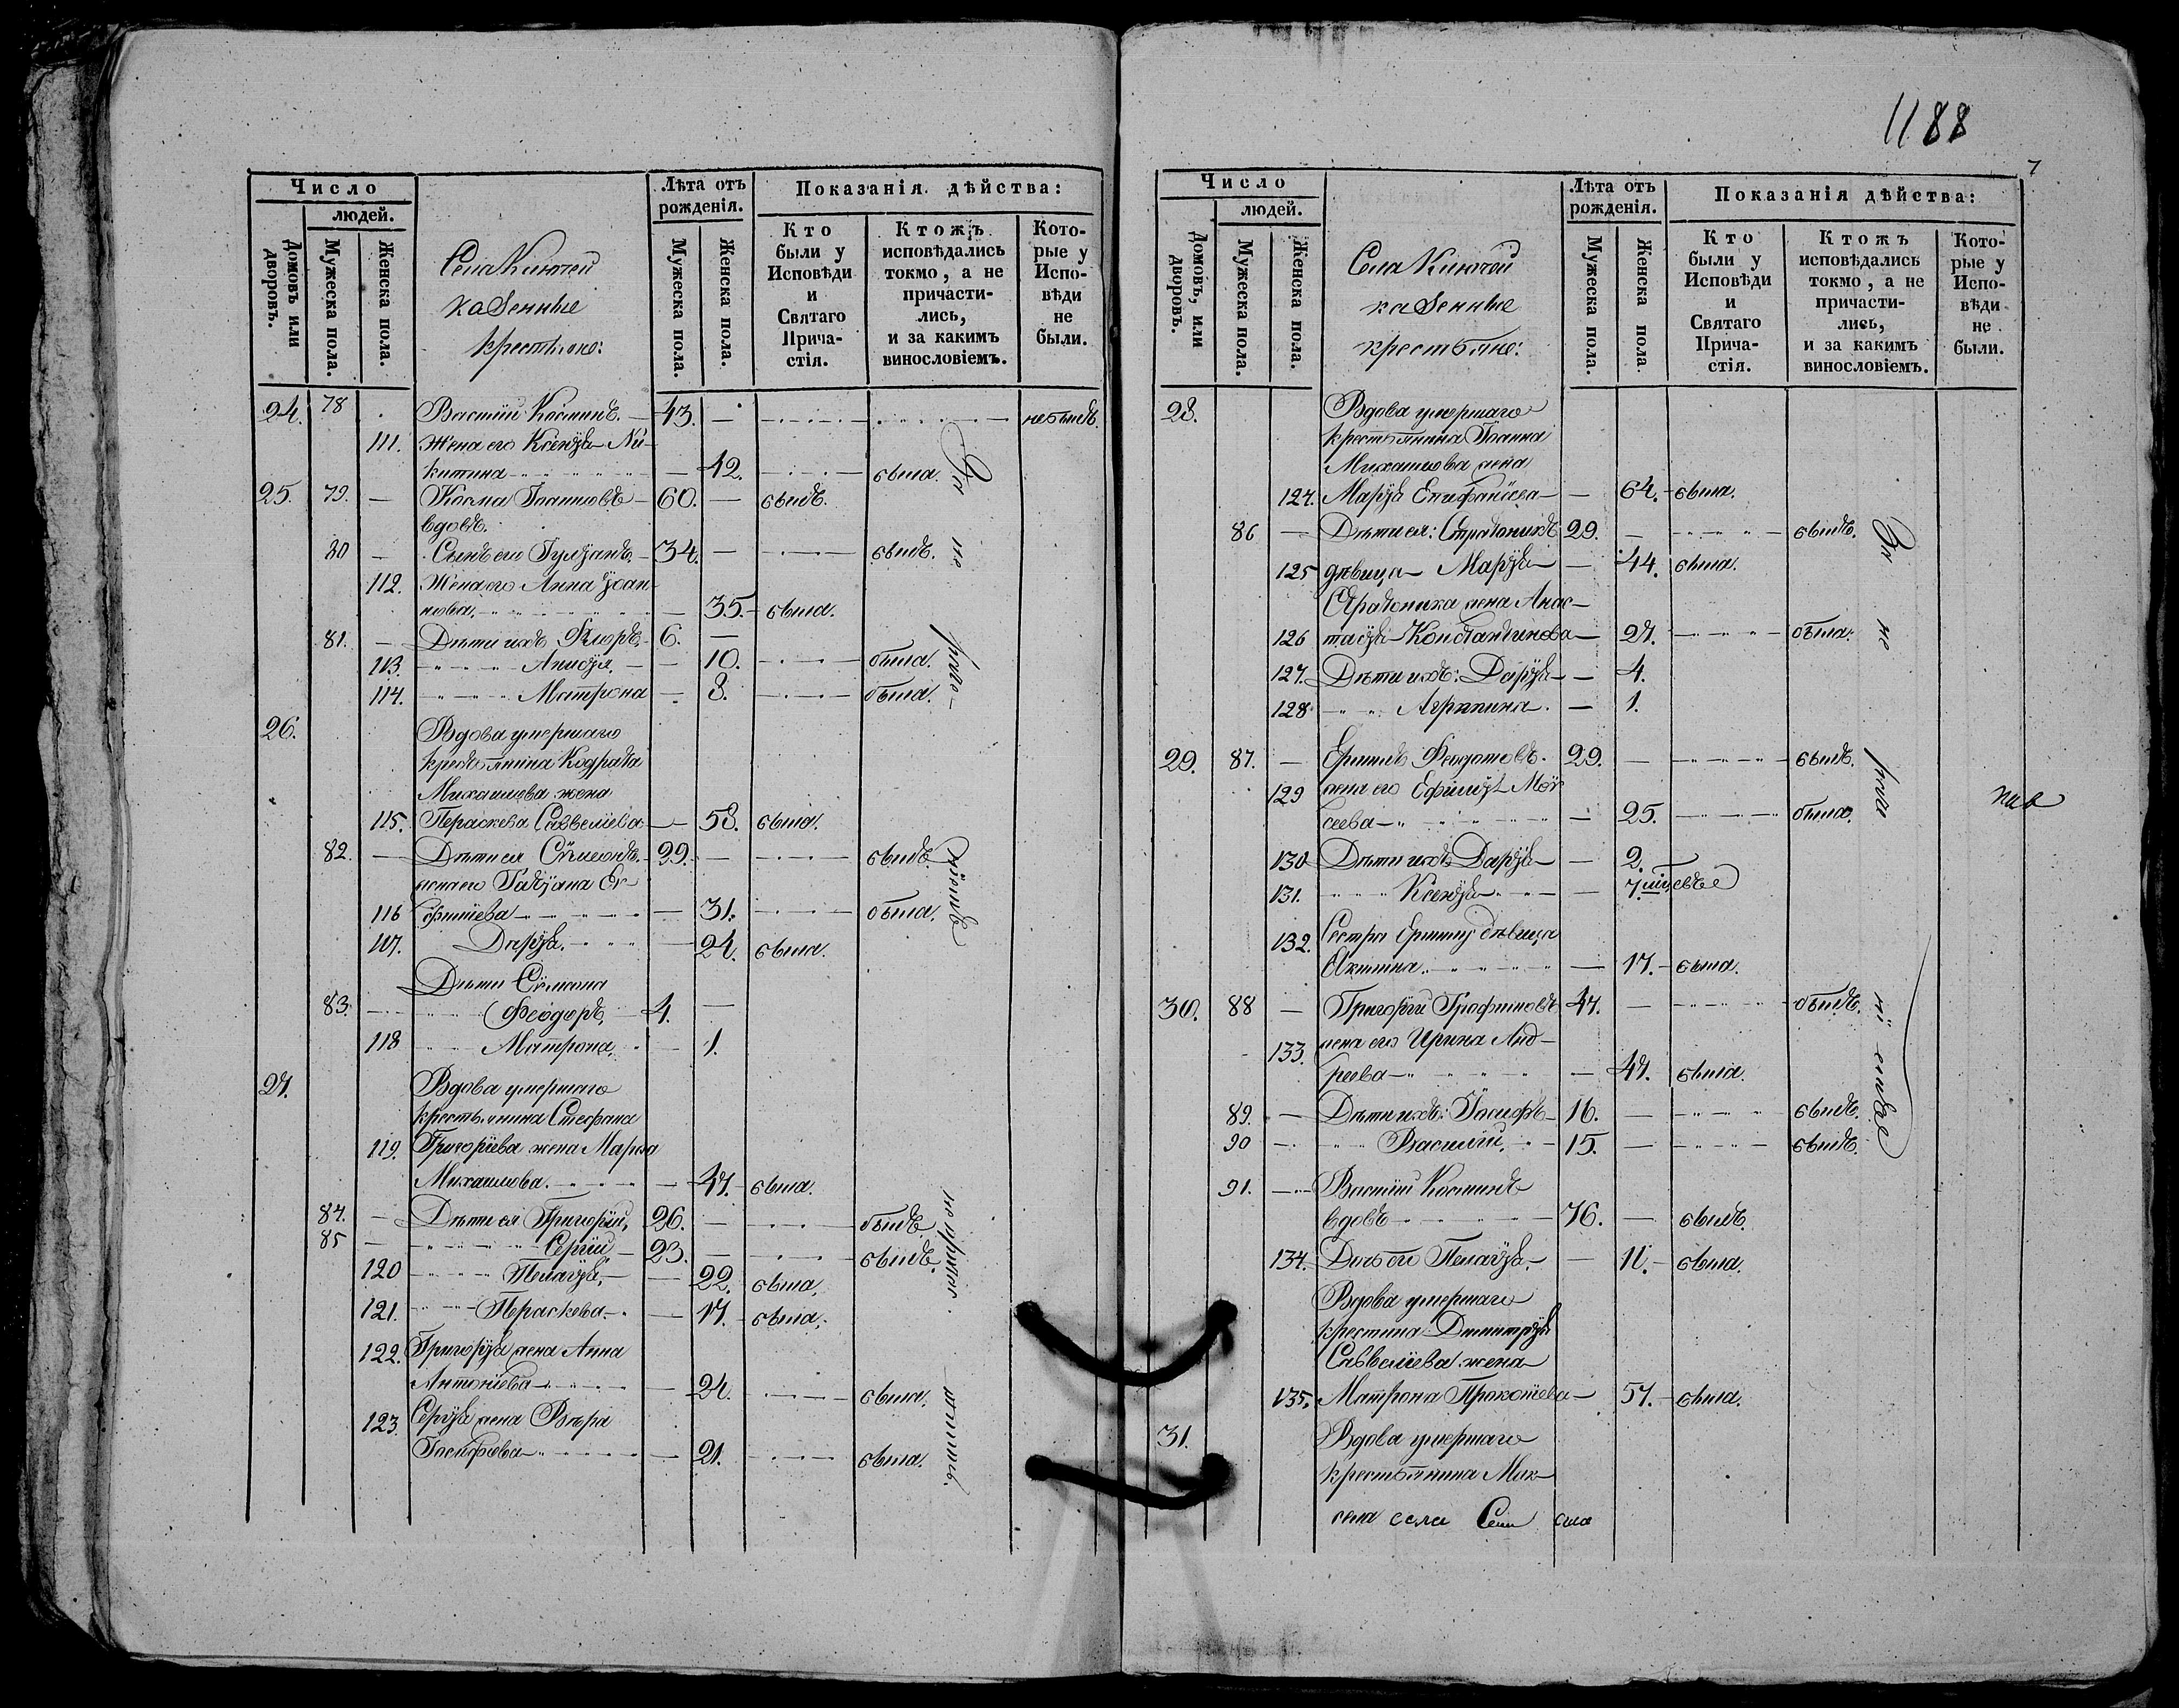 Число
людей.
Домовъ или дворовъ.
Мужеска пола.
Женска пола.
Лѣта отъ рожденія.
Мужеска пола.
Женска пола.
Показанія дѣйства:
Кто были у Исповѣди и Святаго Прича-стія.
Ктожъ исповѣдались токмо, а не причасти-лись, и за какимъ винословіемъ.
Кото-рые у Испо-вѣди не были.
Села Ключей
казенные
крестьяне:
24. 78 . Василій Косминъ. 43. — не былъ.
111. Жена его Ксенія Ни-
китина 42. была.
25. 79. — Косма Іоанновъ 60. — былъ.
вдовъ.
80 — Сынъ его Іуліанъ 34. — былъ.
112. Жена его Анна Іоан-
нова, 35. была.
81. — Дѣти ихъ 6. —
113. Анисія 10. была.
114. Матрона 8. была.
26. Вдова умершаго
крестьянина Кодрата
Михаилова жена
115. Параскева Савельева 58. была.
82. — Дѣти ея Сѵмеонъ 29. — былъ.
жена его Татіана Ев-
116 фимиева 31. была.
117. Дарія. 24. была.
Дѣти Сѵмеона
83. Феодоръ, 4. —
118 Матрона, 1.
27. Вдова умершаго
крестьянина Стефана
119. Григоріева жена Марѳа
Михаилова. 47. была.
84. — Дѣти ея Григорій, 26. — былъ.
85 — Сергій 23. — былъ.
120 Пелагія, 22. была.
121. Параскева. 17. была.
122. Григорія жена Анна
Антоніева 24. была.
123. Сергія жена Вѣра
Іосифова 21. была.
За не радѣніемъ
1188
7
Число
людей.
Домовъ, или дворовъ.
Мужеска пола.
Женска пола.
Лѣта отъ рожденія.
Мужеска пола.
Женска пола
Показанія дѣйства:
Кто были у Исповѣди и Святаго Прича-стія.
Ктожъ исповѣдались токмо, а не причасти-лись, и за какимъ винословіемъ.
Кото-рые у Испо-вѣди не были.
Села Ключей
казенные
крестьяне:
28. Вдова умершаго
крестьянина Іоанна
Михаилова жена
124. Марія Епифаніева 64. была.
86 — Дѣти ея: Стратоникъ 29. — былъ.
125 дѣвица Марія 44. была.
Стратоника жена Анас-
126 тасія Константинова 27. была.
127. Дѣти ихъ: Дарія 4.
128 Агрипина. 1.
29. 87. — Ермилъ Феодотовъ. 29. — былъ.
129 жена его Ефимія Мой-
сеева 25. была.
130 Дѣти ихъ Дарія 2.
131. Ксенія 7.
132. Сестра Ермила дѣвица
Акилина. 17. была.
30. 88 — Григорій Трофимовъ 47. — былъ.
133. жена его Ирина Анд-
реева 47. была.
89. — Дѣти ихъ: Іосифъ 16. — былъ.
90 — Василій. 15. — былъ.
91. Василій Косминъ
вдовъ 76. — былъ.
134. Дочь его Пелагія. 11. была.
Вдова умершаго
крестьянина Димитрія
Савельева жена
135. Матрона Прокопіева 57. была.
31. Вдова умершаго
крестьянина Мак-